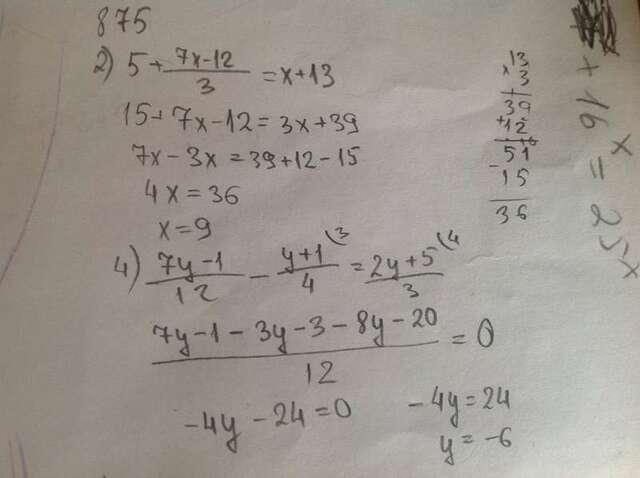 875
2) 5 + \frac{7x-12}{3} = x+13
15 + 7x - 12 = 3x + 39
7x - 3x = 39 + 12 - 15
4x = 36
x = 9
13
× 3
39
+12
51
- 15
36
4) \frac{7y-1}{12} - \frac{y+1}{4}^{(3} = \frac{2y+5}{3}^{(4}
\frac{7y-1-3y-3-8y-20}{12} = 0
-4y - 24 = 0
-4y = 24
y = -6
+ 16^x = 25^{-x}